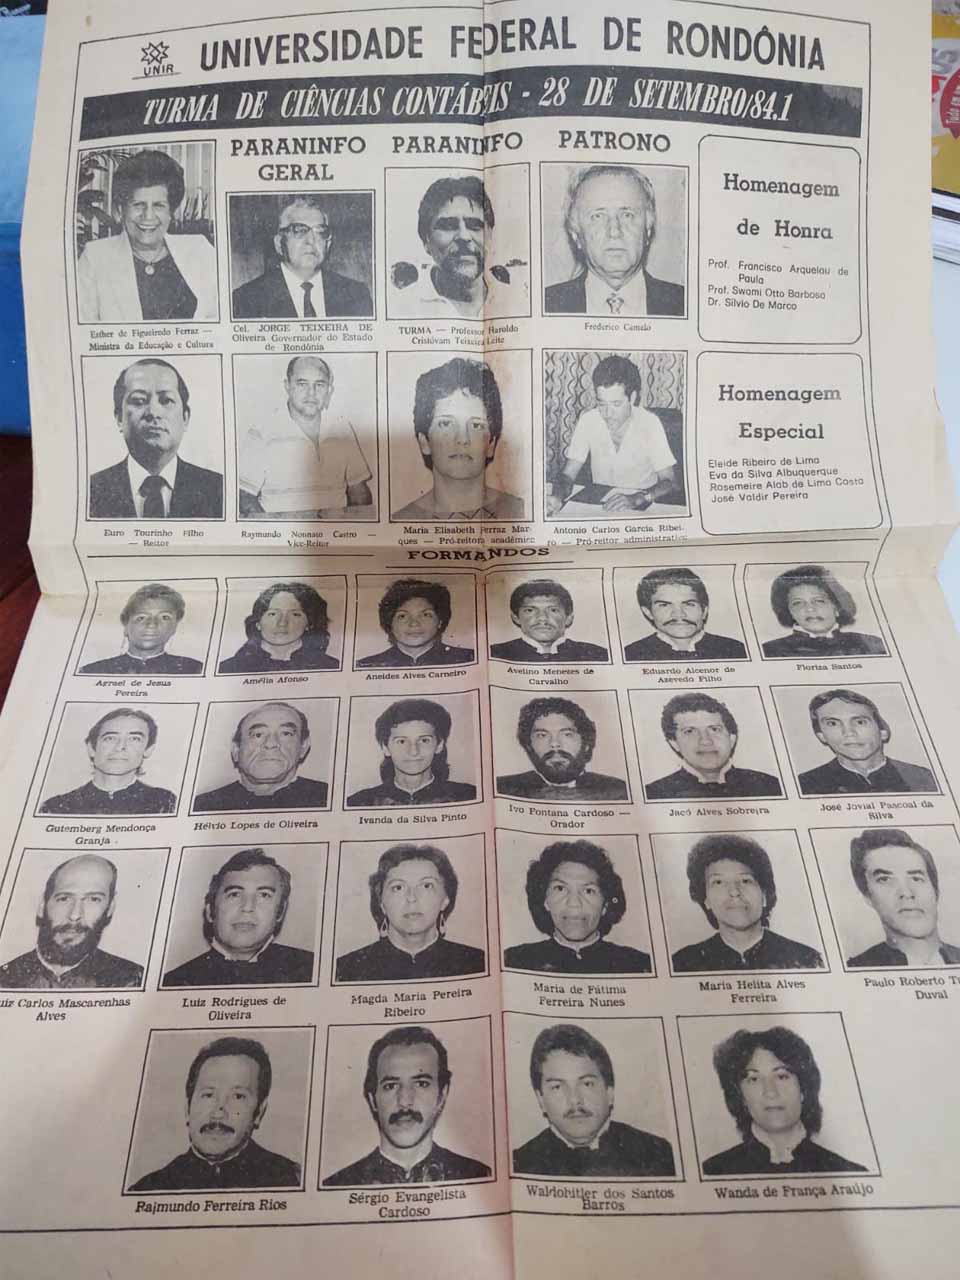 UNIVERSIDADE FEDERAL DE RONDÔNIA
UNIR
TURMA DE CIÊNCIAS CONTÁBEIS - 28 DE SETEMBRO/84.1
PARANINFO
GERAL
PARANINFO
PATRONO
Esther de Figueiredo Ferraz —
Ministra da Educação e Cultura
Cel. JORGE TEIXEIRA DE
Oliveira Governador do Estado
de Rondônia
TURMA — Professor Haroldo
Cristóvam Teixeira Leite
Frederico Camelo
Homenagem
de Honra
Prof. Francisco Arquelau de
Paula
Prof. Swami Otto Barbosa
Dr. Silvio De Marco
Euro Tourinho Filho
— Reitor
Raymundo Nonnato Castro —
Vice-Reitor
Maria Elisabeth Ferraz Mar-
ques — Pró-reitora acadêmica
Antonio Carlos Garcia Ribei-
ro — Pró-reitor administrativo
Homenagem
Especial
Eleide Ribeiro de Lima
Eva da Silva Albuquerque
Rosemeire Alab de Lima Costa
José Valdir Pereira
FORMANDOS
Agrael de Jesus
Pereira
Amélia Afonso
Aneides Alves Carneiro
Avelino Menezes de
Carvalho
Eduardo Alcenor de
Azevedo Filho
Floriza Santos
Gutemberg Mendonça
Granja
Hélvio Lopes de Oliveira
Ivanda da Silva Pinto
Ivo Fontana Cardoso —
Orador
Jacó Alves Sobreira
José Jovial Pascoal da
Silva
uiz Carlos Mascarenhas
Alves
Luiz Rodrigues de
Oliveira
Magda Maria Pereira
Ribeiro
Maria de Fátima
Ferreira Nunes
Maria Helita Alves
Ferreira
Paulo Roberto T
Duval
Raimundo Ferreira Rios
Sérgio Evangelista
Cardoso
Waldohitler dos Santos
Barros
Wanda de França Araújo